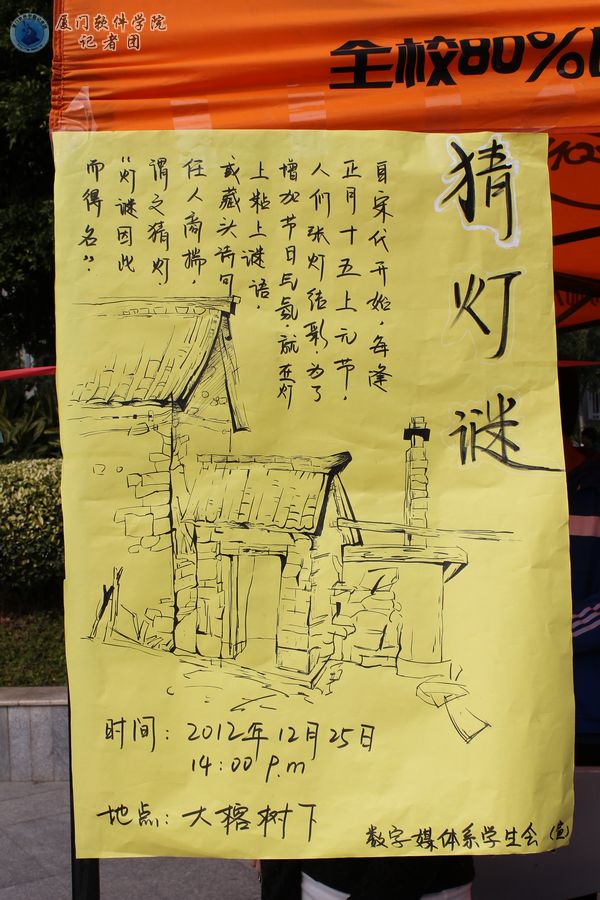 厦门软件学院
记者团
全校80%
猜灯谜
自宋代开始，每逢
正月十五上元节，
人们张灯结彩．为了
增加节日气氛，就在灯
上粘上谜语，
或藏头诗句
任人商揣，
谓之猜灯
“灯谜因此
而得名”．
时间：2012年12月25日
14:00 P.m
地点：大榕树下
数字媒体系学生会（宣）